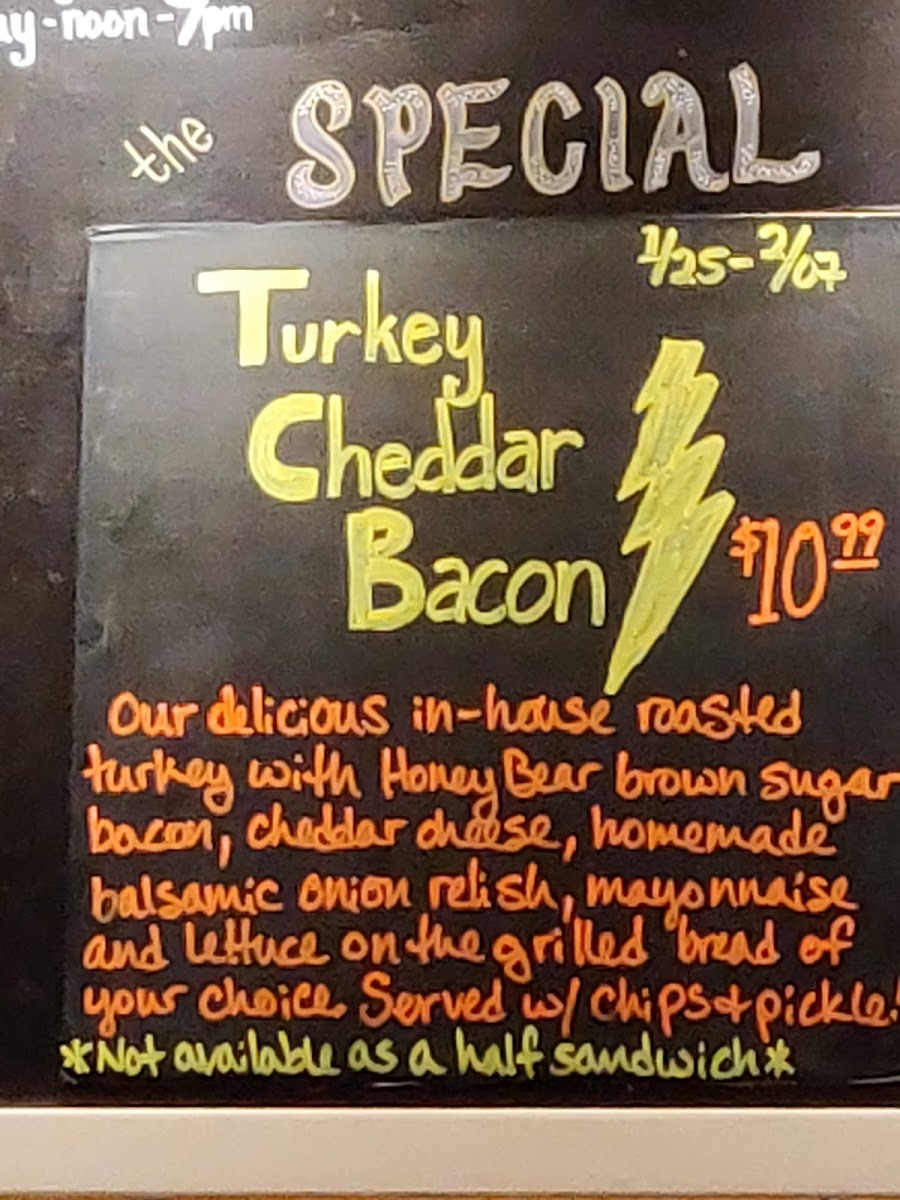 noon-7pm
the SPECIAL
1/25-2/07
Turkey
Cheddar
Bacon
$10.99
Our delicious in-house roasted
turkey with Honey Bear brown sugar
bacon, cheddar cheese, homemade
balsamic onion relish, mayonnaise
and lettuce on the grilled bread of
your choice Served w/ chips + pickle!
*Not available as a half sandwich*